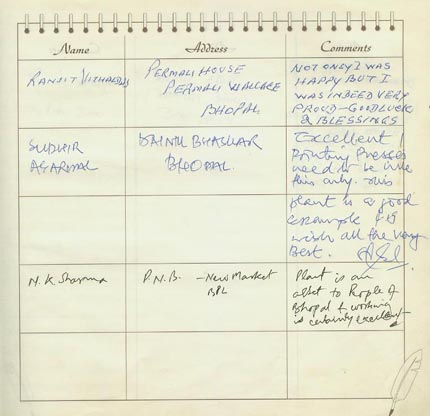 Name Address Comments
RANJIT VITHALDAS PERMALI HOUSE NOT ONLY I WAS
PERMALI WALLACE HAPPY BUT I
BHOPAL WAS INDEED VERY
PROUD - GOOD LUCK
& BLESSINGS
SUDHIR DAINIK BHASKAR Excellent !
AGARWAL BHOPAL. Printing Presses
need to be like
this only. This
plant is a good
example
wish all the very
Best.
N.K Sharma P.N.B. - New Market Plant is an
BPL asset to People of
Bhopal & working
is certainly excellent